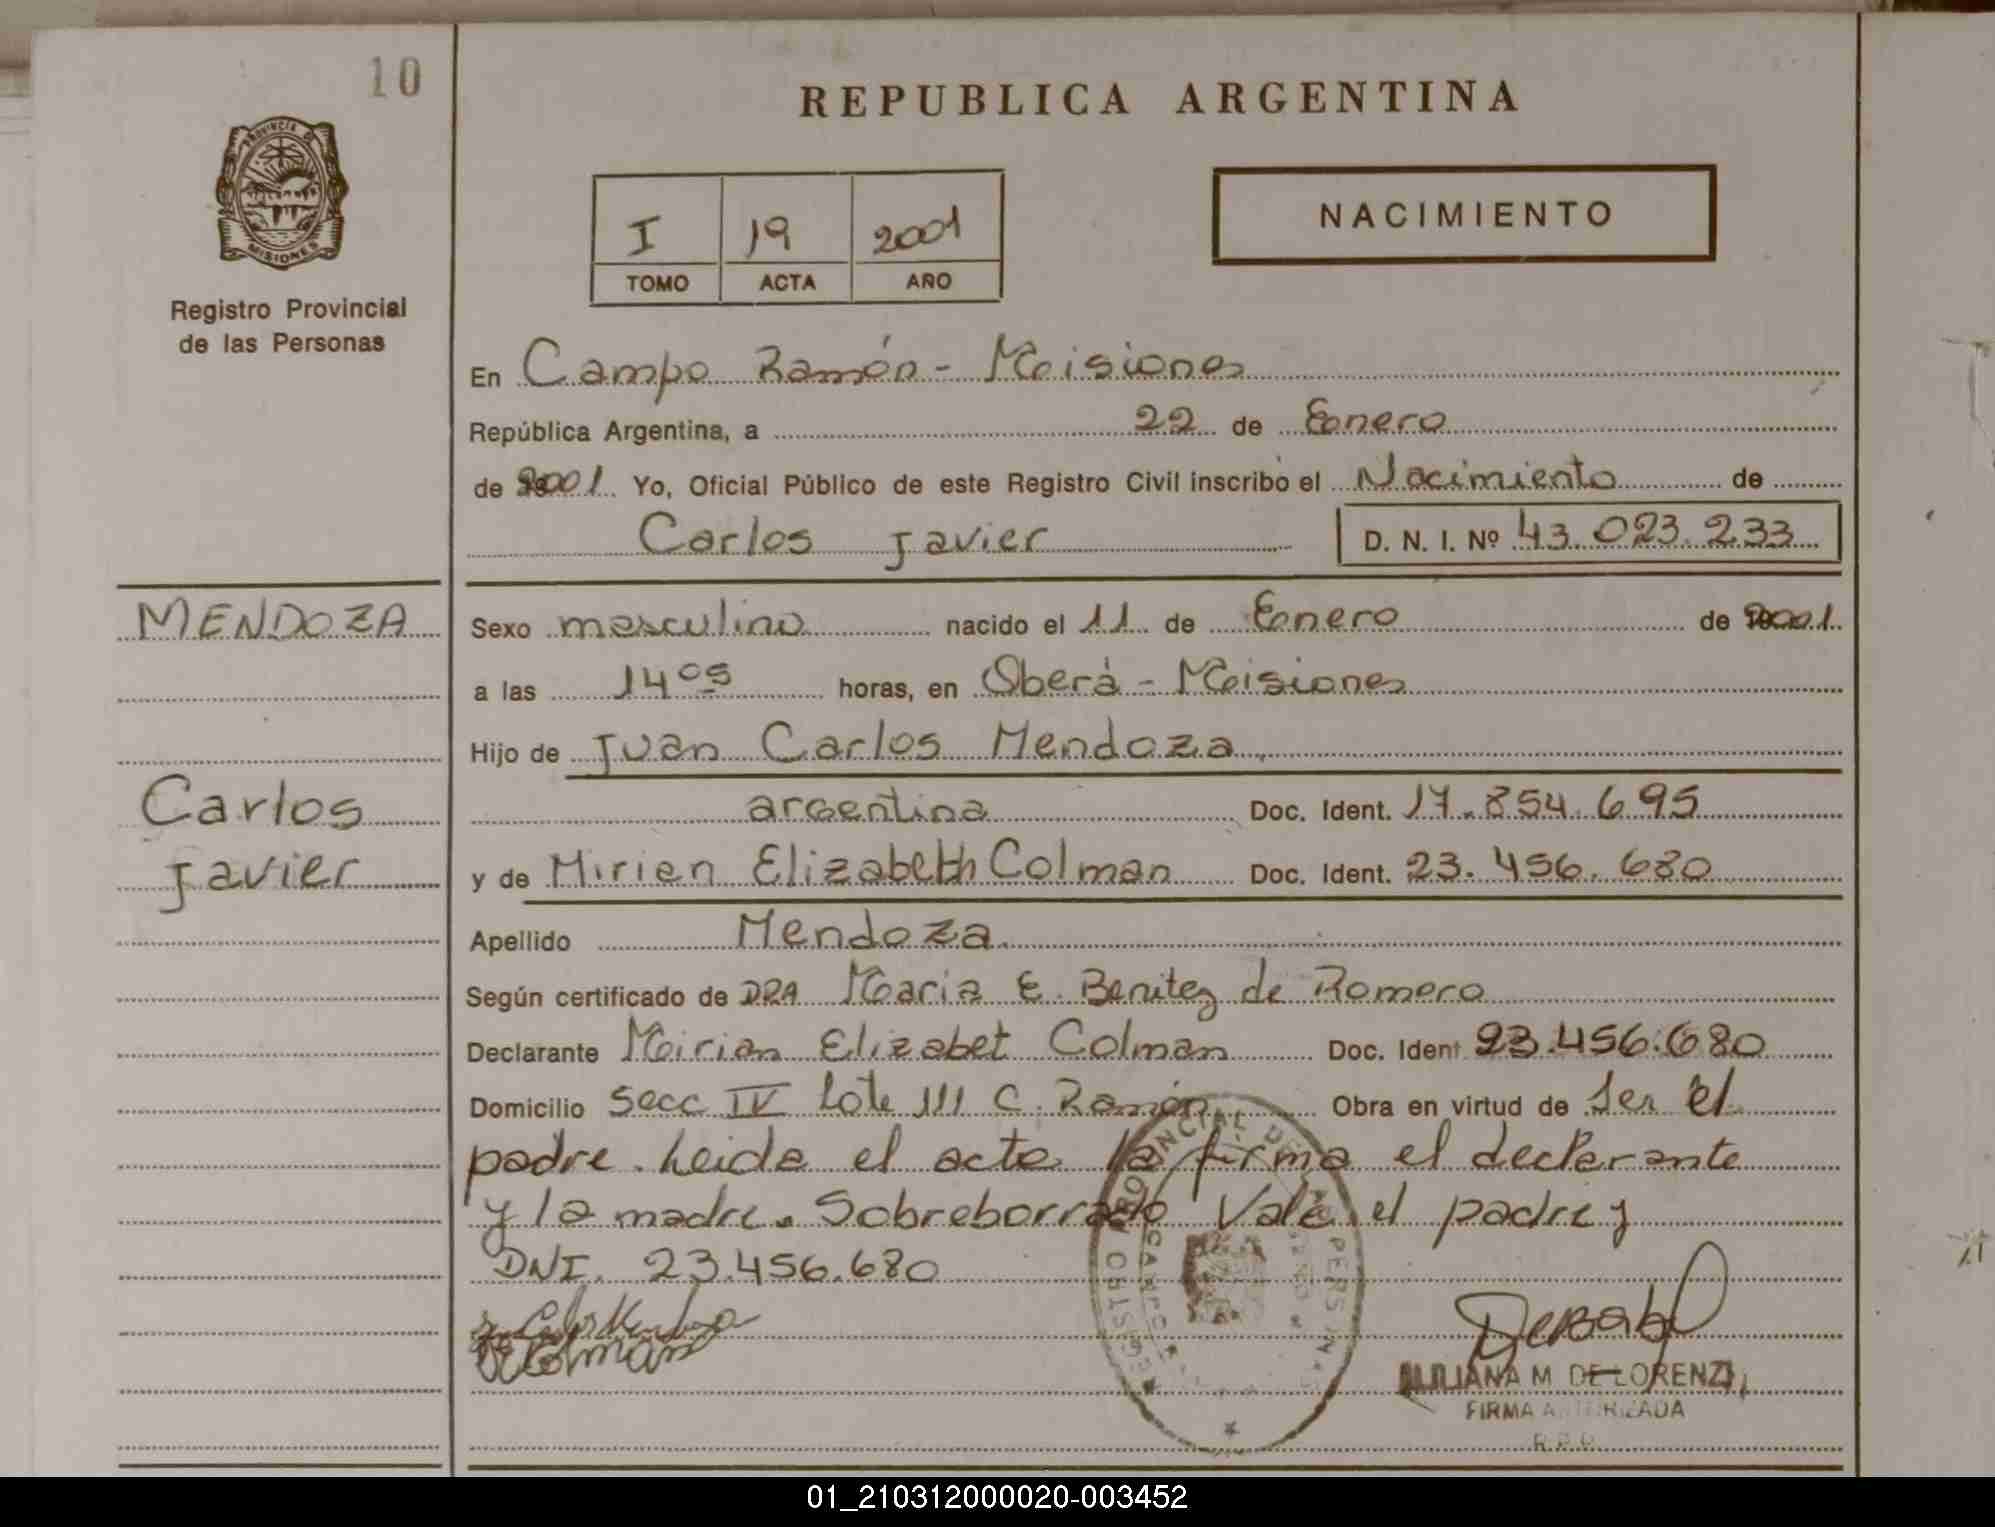 10
REPUBLICA ARGENTINA
PROVINCIA DE
MISIONES
Registro Provincial
de las Personas
I 19 2001
TOMO ACTA AÑO
NACIMIENTO
En Campo Ramón - Misiones
República Argentina, a 22 de Enero
de 2001 Yo, Oficial Público de este Registro Civil inscribo el Nacimiento de
Carlos Javier D. N. I. Nº 43.023.233
MENDOZA
Carlos
Javier
Sexo masculino nacido el 11 de Enero de 2001
a las 14 05 horas, en Oberá - Misiones
Hijo de Juan Carlos Mendoza
argentina Doc. Ident. 17.854.695
y de Mirien Elizabeth Colman Doc. Ident. 23.456.680
Apellido Mendoza
Según certificado de DRA Maria E. Benitez de Romero
Declarante Mirian Elizabet Colman Doc. Ident 23.456.680
Domicilio Secc IV Lote 111 C. Ramón Obra en virtud de ser el
padre. Leida el acta la firma el declarante
y la madre. Sobreborrado Vale el padre y
DNI. 23.456.680
Colman
LILIANA M. DE LORENZI
FIRMA AUTORIZADA
R.P.P.
01_210312000020-003452